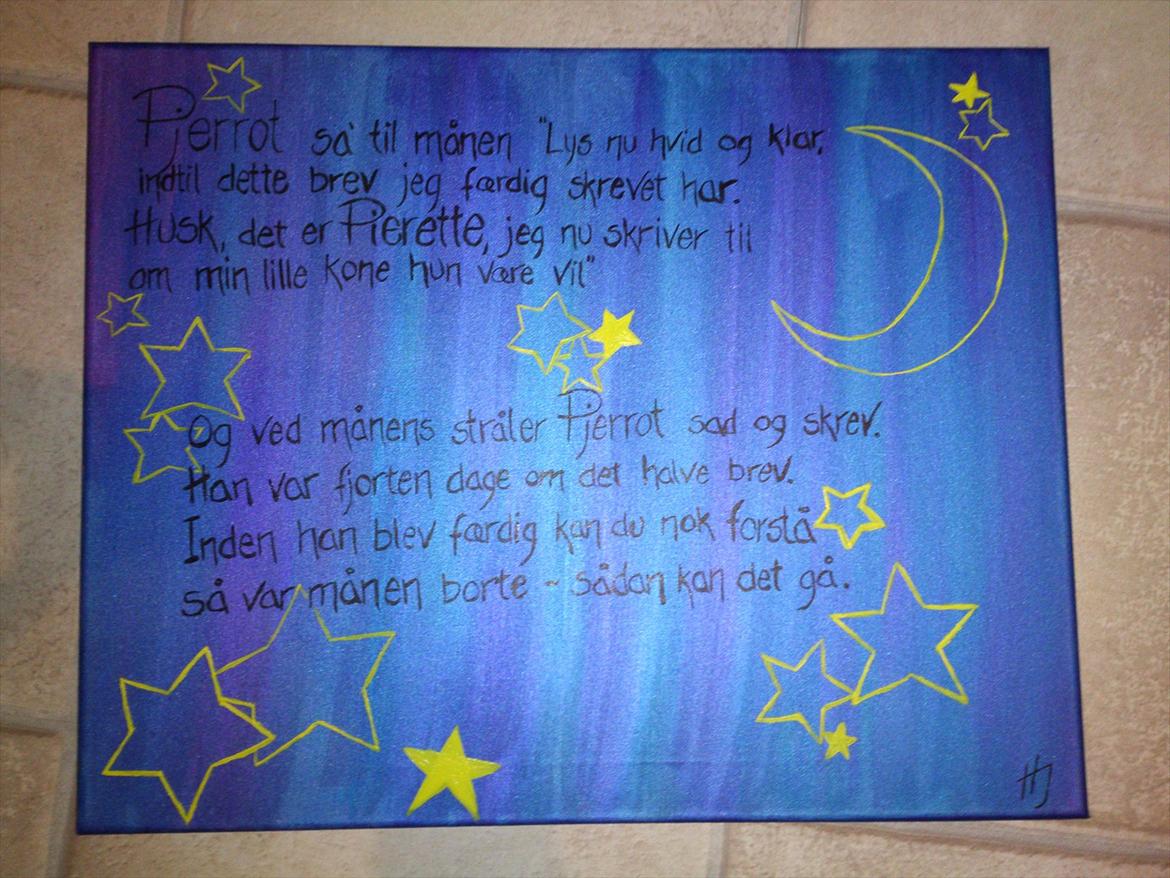 Pjerrot så til månen "Lys nu hvid og klar,
indtil dette brev jeg færdig skrevet har.
Husk, det er Pierette, jeg nu skriver til
om min lille kone hun være vil"
Og ved månens stråler Pjerrot sad og skrev.
Han var fjorten dage om det halve brev.
Inden han blev færdig kan du nok forstå
så var månen borte - sådan kan det gå.
HJ